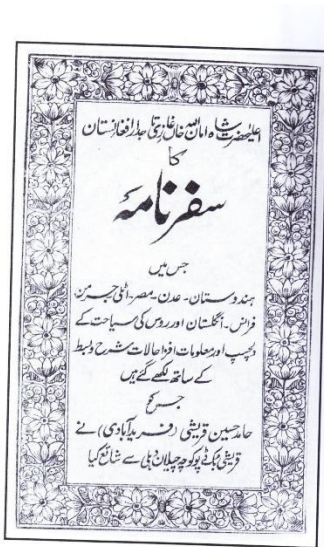 اعلیٰحضرت شاہ امان اللہ خان غازی تاجدار افغانستان
کا
سفر نامہ
جس میں
ہندوستان۔ عدن۔ مصر۔ اٹلی جرمن
فرانس۔ انگلستان اور روس کی سیاحت کے
دلچسپ اور معلومات افزا حالات شرح و بسط
کے ساتھ لکھے گئے ہیں
جس کو
حامد حسین قریشی (فرید آبادی) نے
قریشی بکڈپو کوچہ چیلان دہلی سے شائع کیا